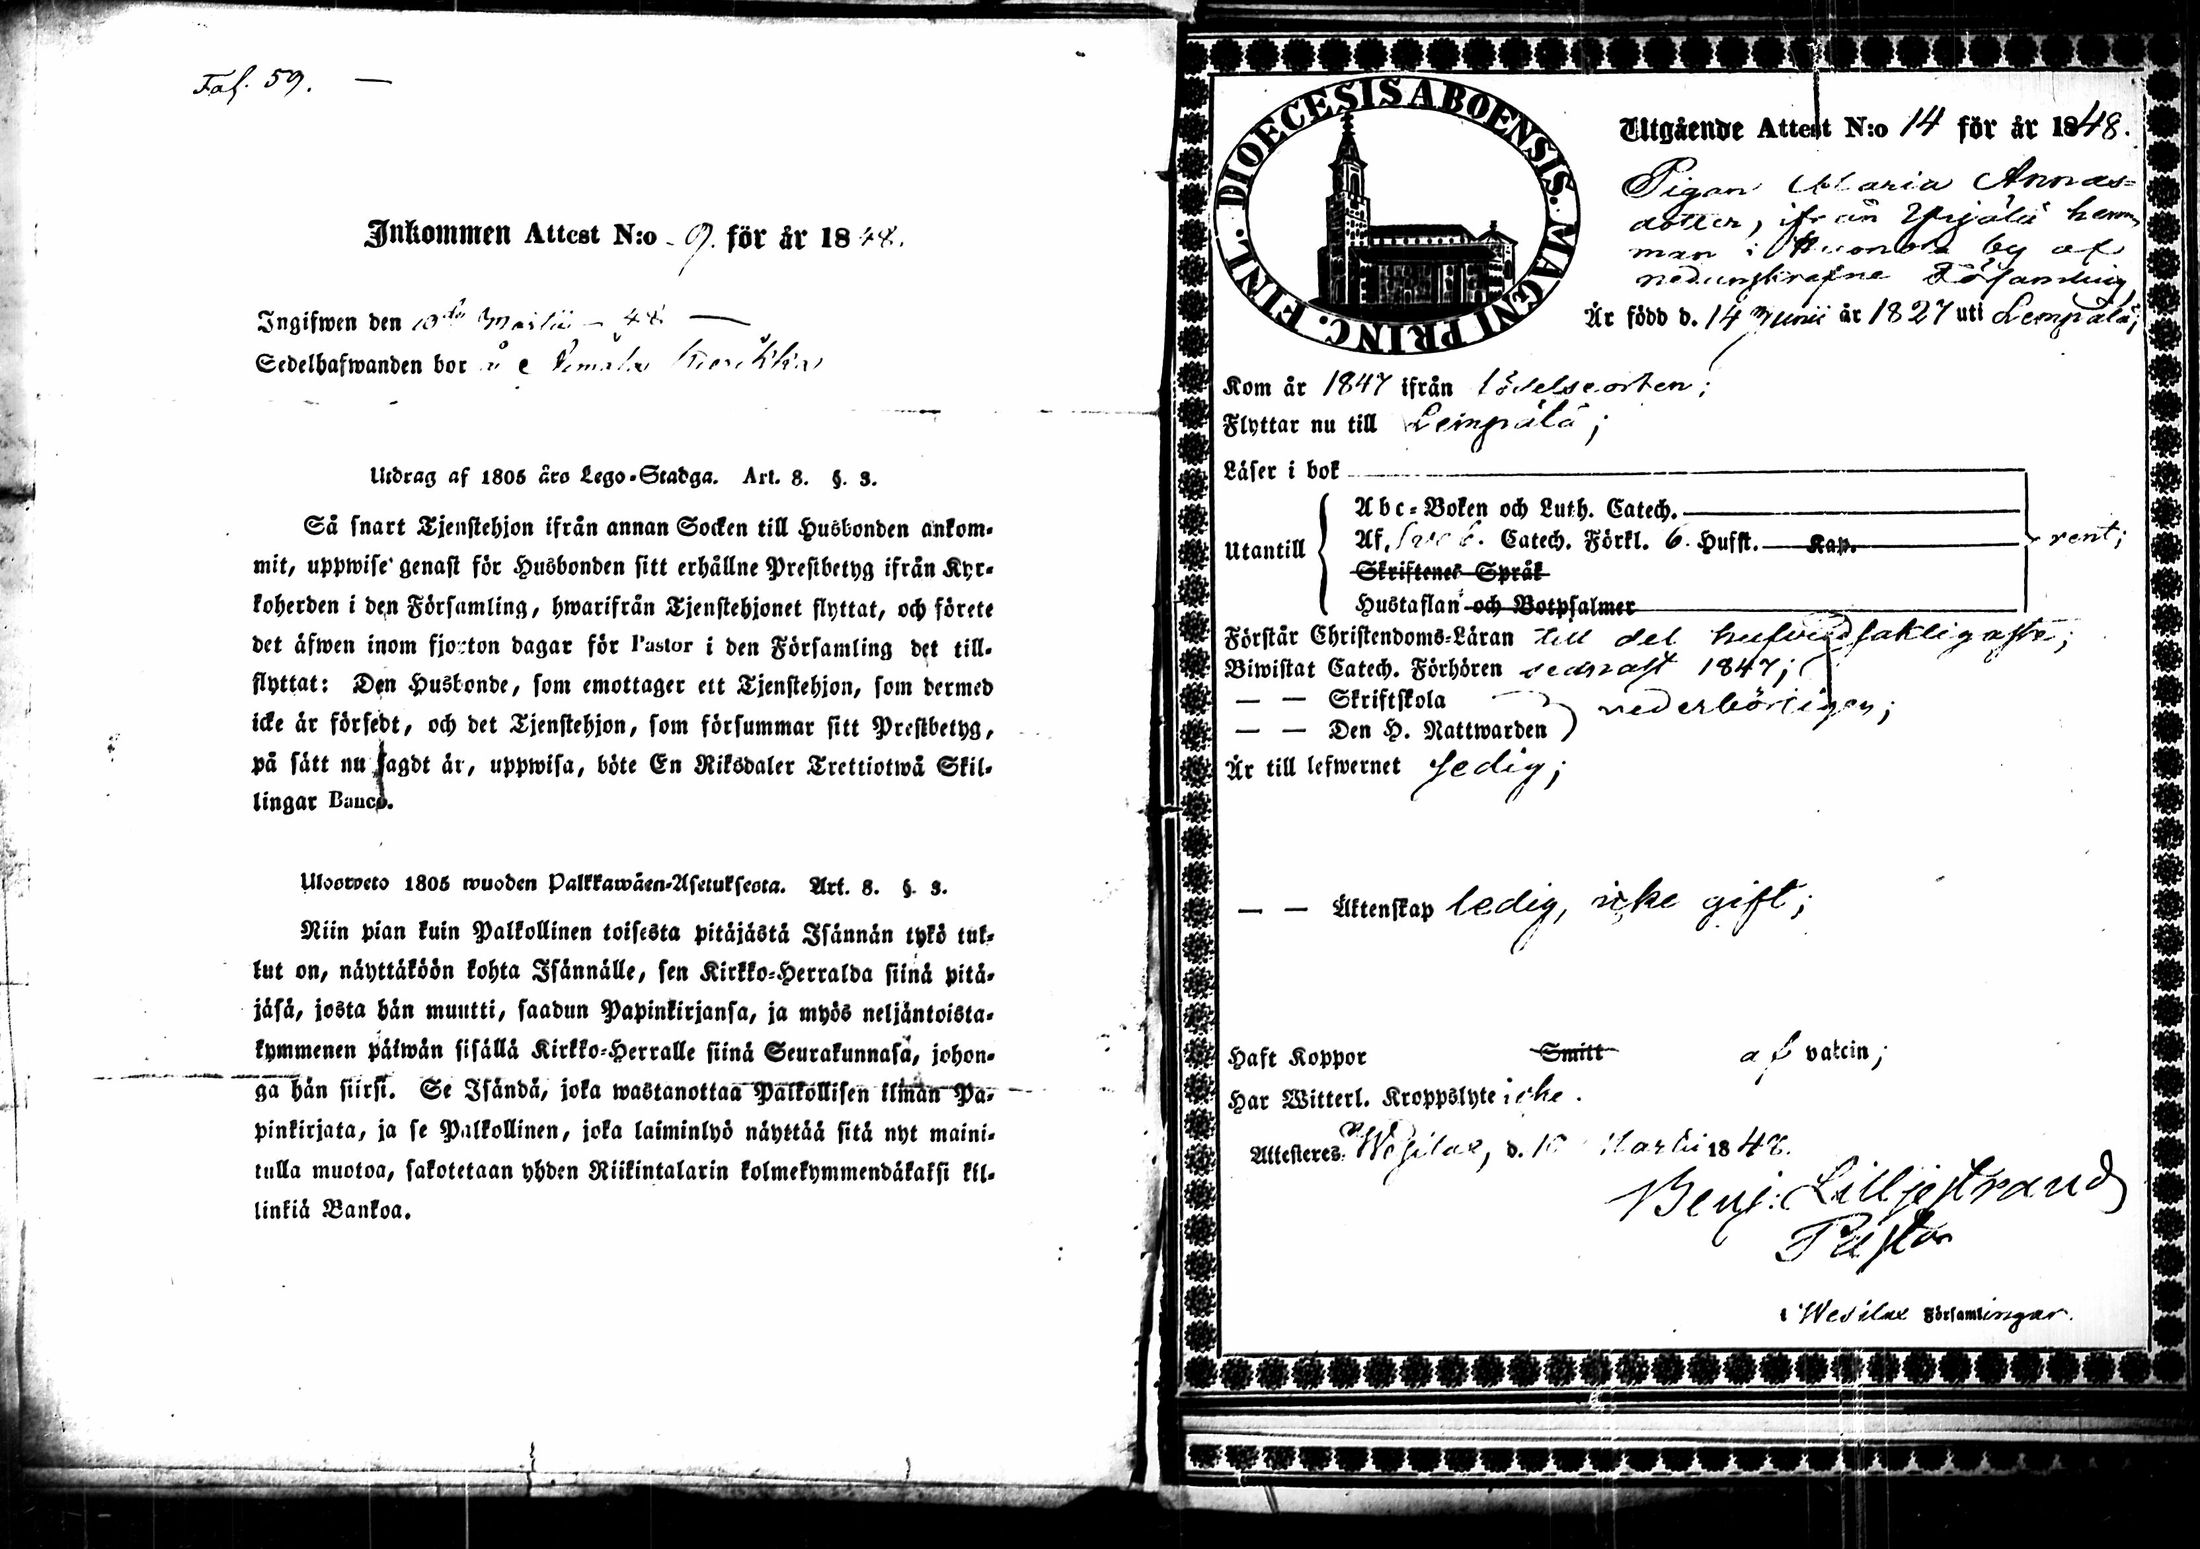 Fol. 59. —
Inkommen Attest N:o 9. för år 1848.
Ingifwen den 10de Martii 48 —
Sedelhafwanden bor
Utdrag af 1805 års Lego-Stadga. Art. 8. §. 3.
Så snart Tjenstehjon ifrån annan Socken till Husbonden ankom-
mit, uppwise genast för Husbonden sitt erhållne Prestbetyg ifrån Kyr-
koherden i den Församling, hwarifrån Tjenstehjonet flyttat, och förete
det äfwen inom fjorton dagar för Pastor i den Församling det till-
flyttat: Den Husbonde, som emottager ett Tjenstehjon, som dermed
icke är försedt, och det Tjenstehjon, som försummar sitt Prestbetyg,
på sätt nu sagdt är, uppwisa, böte En Riksdaler Trettiotwå Skil-
lingar Banco.
Ulosweto 1805 wuoden Palkkawäen-Asetuksesta. Art. 8. §. 3.
Niin pian kuin Palkollinen toisesta pitäjästä Isännän tykö tul-
lut on, näyttäköön kohta Isännälle, sen Kirkko-Herralda siinä pitä-
jäsä, josta hän muutti, saadun Papinkirjansa, ja myös neljäntoista-
kymmenen päiwän sisällä Kirkko-Herralle siinä Seurakunnasa, johon-
ga hän siirsi. Se Isändä, joka wastanottaa Palkollisen ilman Pa-
pinkirjata, ja se Palkollinen, joka laiminlyö näyttää sitä nyt maini-
tulla muotoa, sakotetaan yhden Riikintalarin kolmekymmendäkaksi kil-
linkiä Bankoa.
DIOECESIS ABOENSIS. MAGNI PRINC. FINL.
Utgående Attest N:o 14 för år 1848.
Pigan Maria Annas-
dotter, ifrån Yrjälä hem
man i by af
nedanskrefne Församling,
Är född d. 14 Junii år 1827 uti Lempälä;
Kom år 1847 ifrån födelseorten;
Flyttar nu till Lempälä;
Läser i bok
Abc-Boken och Luth. Catech.
Utantill Af Sveb. Catech. Förkl. 6. Hufst. Kap. rent;
Skriftenes Språk
Hustaflan och Botpsalmer
Förstår Christendoms-Läran till det hufvudsakligaste;
Biwistat Catech. Förhören sednast 1847;
— — Skriftskola
— — Den H. Nattwarden vederbörligen;
Är till lefwernet ledig;
— — Äktenskap ledig, icke gift;
Haft Koppor Smitt af vaccin;
Har Witterl. Kroppslyte icke.
Attesteres Wesilax, d. 10 Martii 1848.
Benj: Lilljestrand
Pastor
i Wesilax Församlingar.